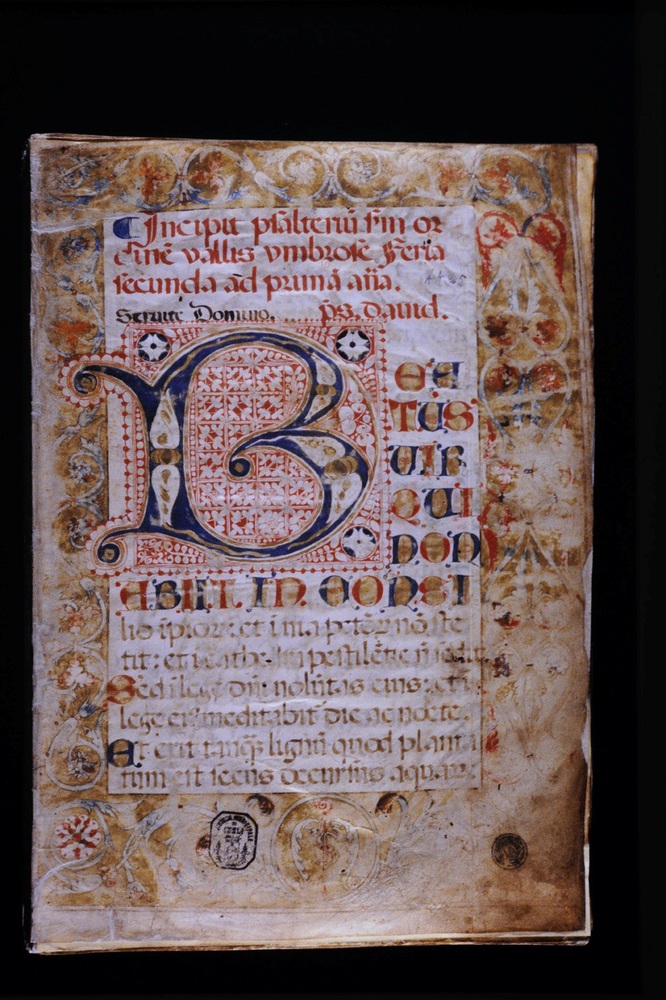 Incipit psalteriũ s̃m or
dinẽ vallis vmbrose. Feria
secunda ad primã aña.
Seruite Domino. ps. dauid.
BEA
TUS
UIR
QUI
NON
ABIIT IN CONSI
lio ipior: et i uia petor nõ ste
tit: et i cathe pestilẽtie
Sed i lege dñi uolũtas eius: et i
lege eiꝰ meditabit die ac nocte.
Et erit tanq̃ lignũ quod planta
tum est secus decursus aquar: